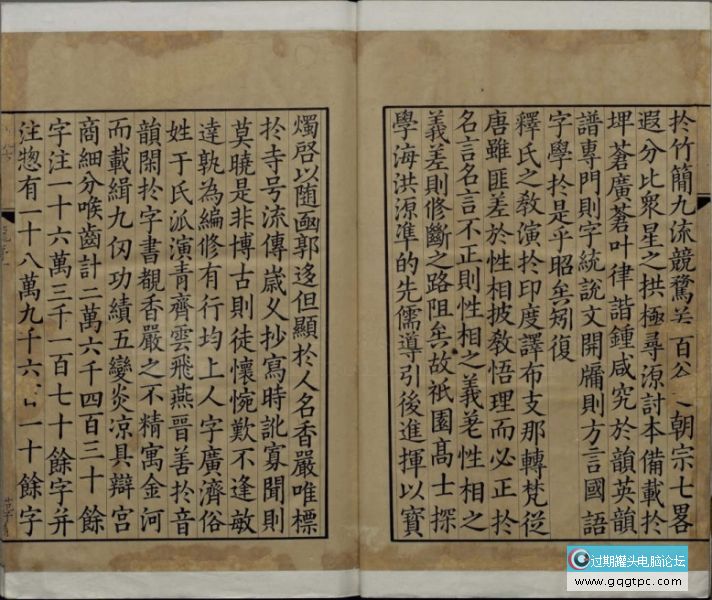 於竹簡九流競騖若百谷之朝宗七畧
遐分比衆星之拱極尋源討本備載於
埤蒼廣蒼叶律諧鍾咸究於韻英韻
譜專門則字統說文開牖則方言國語
字學於是乎昭矣矧復
釋氏之教演於印度譯布支那轉梵從
唐雖匪差於性相披教悟理而必正於
名言名言不正則性相之義差性相之
義差則修斷之路阻矣故祇園髙士探
學海洪源準的先儒導引後進揮以寳
燭啓以随函郭迻但顯於人名香嚴唯標
於寺号流傳歲乆抄寫時訛寡聞則
莫曉是非博古則徒懷惋歎不逢敏
達孰為編修有行均上人字廣濟俗
姓于氏派演青齊雲飛燕晉善於音
韻閑於字書覩香嚴之不精寓金河
而載緝九仞功績五變炎凉具辯宮
商細分喉齒計二萬六千四百三十餘
字注一十六萬三千一百七十餘字并
注惣有一十八萬九千六百一十餘字
过期罐头电脑论坛
www.gqgtpc.com